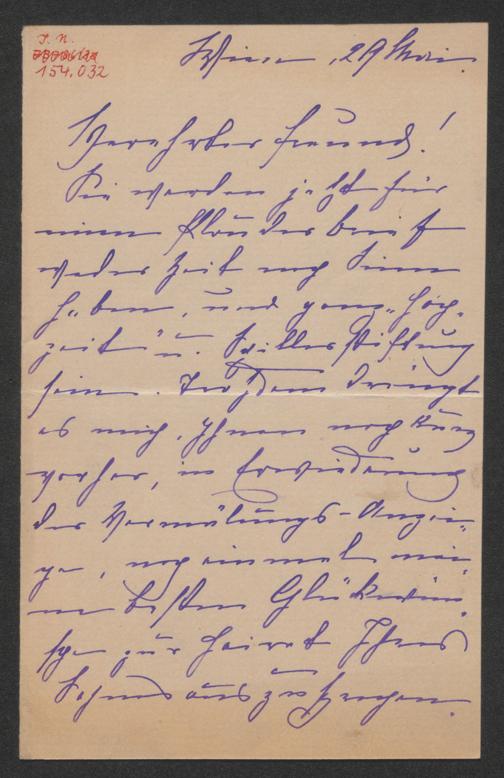 J. N.
154.032
Wien, 29 Mai.
Verehrter Freund!
Sie werden jetzt für
einen Plauderbrief
weder Zeit noch Sinn
haben, und ganz „Hoch-
zeit" u. Schillerstiftung
sein. Trotzdem drängt
es mich, Ihnen noch kurz
vorher, in Erwiederung
der Vermälungs-Anzei-
ge, noch einmal mei-
ne besten Glückwün-
sche zur Heirat Ihres
Sohnes auszusprechen.